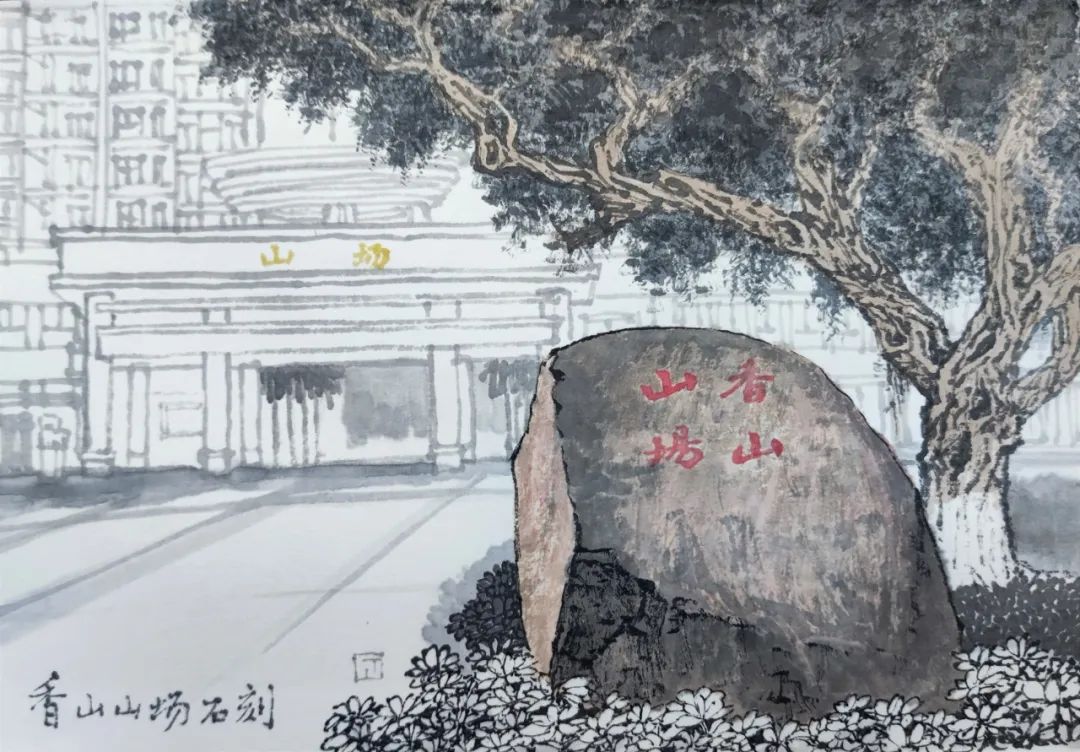 山场
香山
山場
香山山场石刻